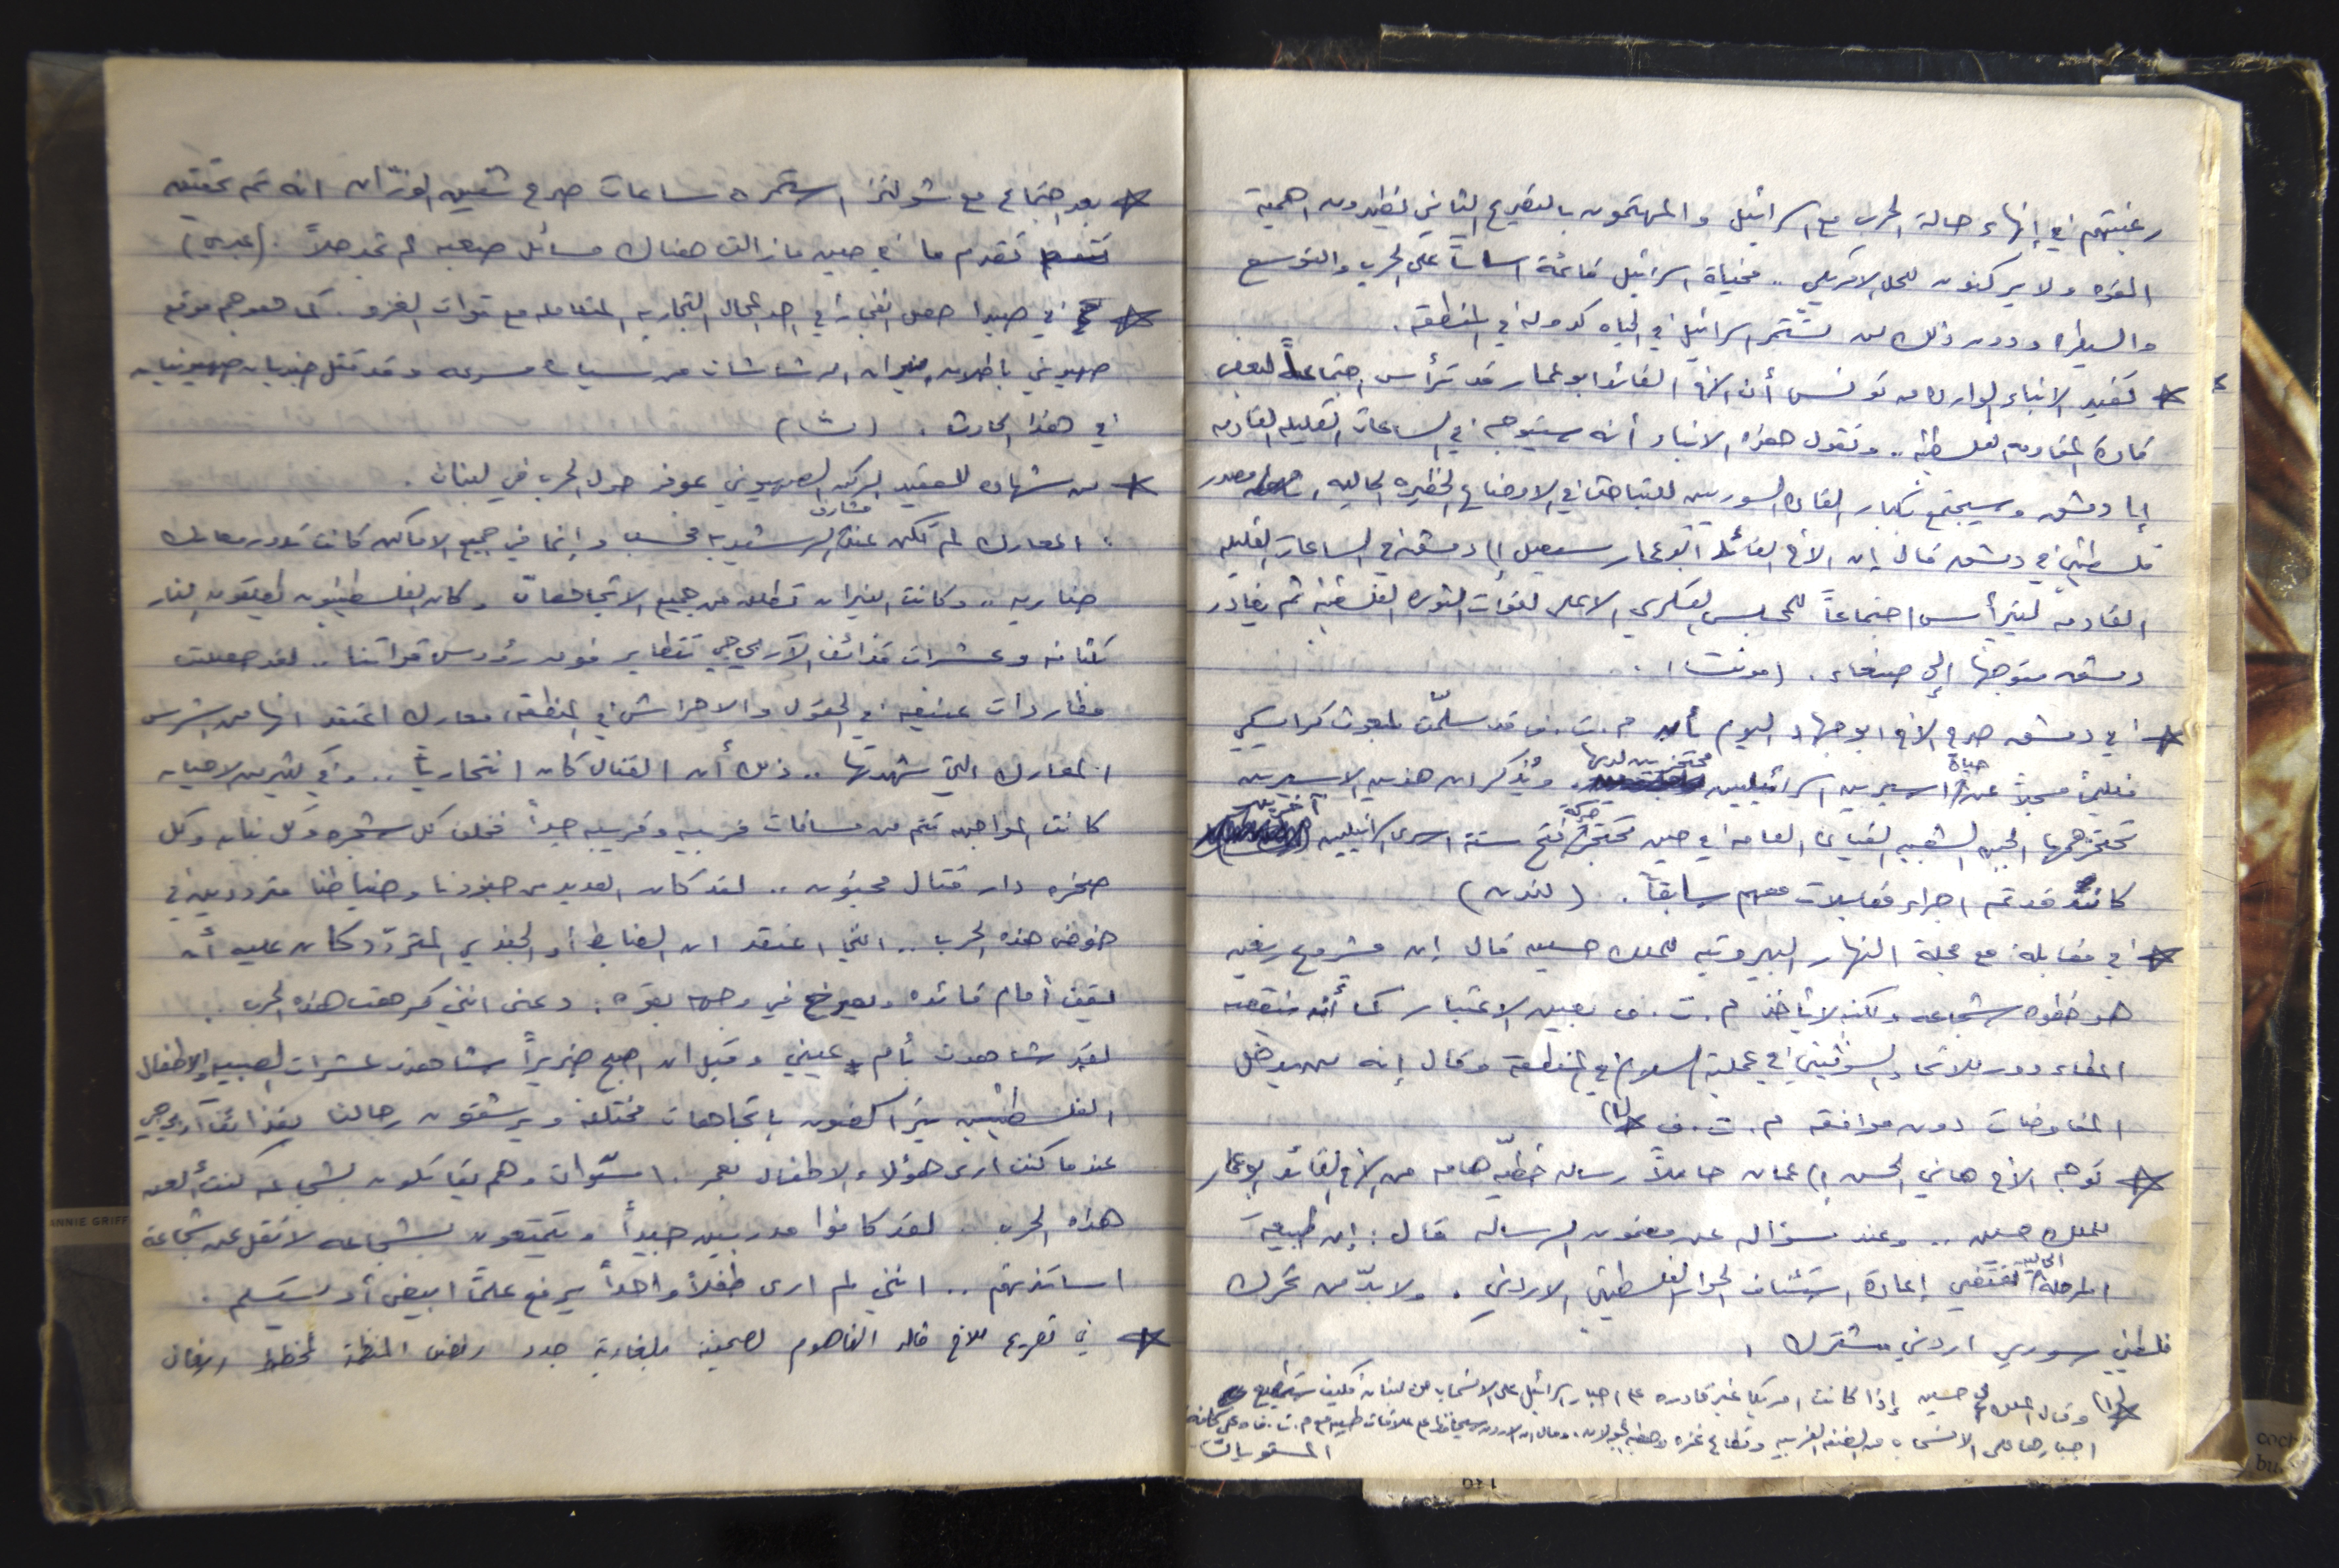 رغبتهم في إنهاء حالة الحرب مع اسرائيل والمهتمون بالتصريح الثاني يظهرون اهمية
القوه ولا يركنون للحل الامريكي .. فحياة اسرائيل قائمة اساساً على الحرب والتوسع
والسيطره ودون ذلك لن تستمر اسرائيل في الحياه كدوله في المنطقه .
* تفيد الانباء الوارده من تونس أن الاخ القائد ابو عمار قد ترأس اجتماعاً لبعض
قادة المقاومه الفلسطينيه .. وتقول هذه الانباء أنه سيتوجه في الساعات القليله القادمه
إلى دمشق وسيجتمع بكبار القاده السوريين للتباحث في الاوضاع الخطيره الحاليه , مصدر
فلسطيني في دمشق قال إن الاخ القائد ابو عمار سيصل إلى دمشق في الساعات القليله
القادمه ليترأس اجتماعاً للمجلس العسكري الاعلى لقوات الثوره الفلسطينيه ثم يغادر
دمشق متوجهاً إلى صنعاء . (مونت) .
* في دمشق صرح الاخ ابو جهاد اليوم بأن م.ت.ف قد سلمت المبعوث كرايسكي
فيلماً مسجلاً عن حياة اسيرين اسرائيليين محتجزين لديها . ويُذكر ان هذين الاسيرين
تحتجزهما الجبهه الشعبيه القياده العامه في حين تحتجز حركة فتح ستة اسرى اسرائيليين آخرين
كانت قد تم اجراء مقابلات معهم سابقاً . (لندن)
* في مقابلة مع مجلة النهار البيروتيه للملك حسين قال إن مشروع ريغن
هو خطوه شجاعه ولكنه لا يأخذ م.ت.ف بعين الاعتبار كما أنه ينقصه
اعطاء دور للاتحاد السوفييتي في عملية السلام في المنطقة وقال إنه لن يدخل
المفاوضات دون موافقه م.ت.ف *(١)
* توجه الاخ هاني الحسن إلى عمان حاملاً رساله خطيّه هامه من الاخ القائد ابو عمار
للملك حسين .. وعند سؤاله عن مضمون الرساله قال : إن طبيعة
المرحلة الحاليه تقتضي إعادة استئناف الحوار الفلسطيني الاردني . ولا بدّ من تحرك
فلسطيني سوري اردني مشترك .
*(١) وقال الملك حسين إذا كانت امريكا غير قادره على اجبار اسرائيل على الانسحاب من لبنان فكيف تستطيع
اجبارها على الانسحاب من الضفه الغربيه وقطاع غزه وهضبة الجولان . وقال ان الاردن سيحافظ على علاقات طيبه مع م.ت.ف وعلى كافة
المستويات
* بعد اجتماع مع شولتز استمر ٥ ساعات صرح شفيق الوزّان انه تم تحقيق
تقدم ما في حين ما زالت هناك مسائل صعبه لم تجد حلاً . (عبري)
* في صيدا حصل انفجار في احد المحال التجاريه المتعامله مع قوات الغزو . كما هوجم موقع
صهيوني باطلاق نيران الرشاشات من سيارة مسرعه وقد قتل جنديان صهيونيان
في هذا الحادث . (شا)
* من شهاده للعقيد الركن الصهيوني عوفر حول الحرب في لبنان .
: المعارك لم تكن عند مشارف الرشيديه فحسب وإنما في جميع الاماكن كانت تدور معارك
ضاريه .. وكانت النيران تطلق من جميع الاتجاهات وكان الفلسطينيون يطلقون النار
بكثافه وعشرات قذائف الآر بي جي تتطاير فوق رؤوس قواتنا .. لقد حصلت
مطاردات عنيفه في الحقول والاحراش في المنطقه، معارك اعتقد انها من اشرس
المعارك التي شهدتها .. ذلك أن القتال كان انتحارياً .. وفي كثير من الاحيان
كانت المواجهه تتم من مسافات قريبه وقريبه جداً فخلف كل شجره وكل بنايه وكل
صخره دار قتال مجنون .. لقد كان العديد من جنودنا وضباطنا مترددين في
خوض هذه الحرب .. انني اعتقد ان الضابط أو الجندي المتردّد كان عليه أن
يقف أمام قائده ويصرخ في وجهه بقوه : دعني انني كرهت هذه الحرب .
لقد شاهدت بأم عيني وقبل ان اصبح ضريراً شاهدت عشرات الصبيه والاطفال
الفلسطينيين يتراكضون باتجاهات مختلفه ويرشقون رجالنا بقذائف آر بي جي
عندما كنت ارى هؤلاء الاطفال بعمر ١٠ سنوات وهم يقاتلون بشجاعه كنت ألعن
هذه الحرب . لقد كانوا مدربين جيداً ويتمتعون بشجاعه لا تقل عن شجاعة
اساتذتهم .. انني لم ارى طفلاً واحداً يرفع علماً ابيض أو يستسلم .
* في تصريح للاخ خالد الفاهوم لصحيفة بلغارية جدد رفض المنظمة لخطط ريغان
ANNIE GRIFF